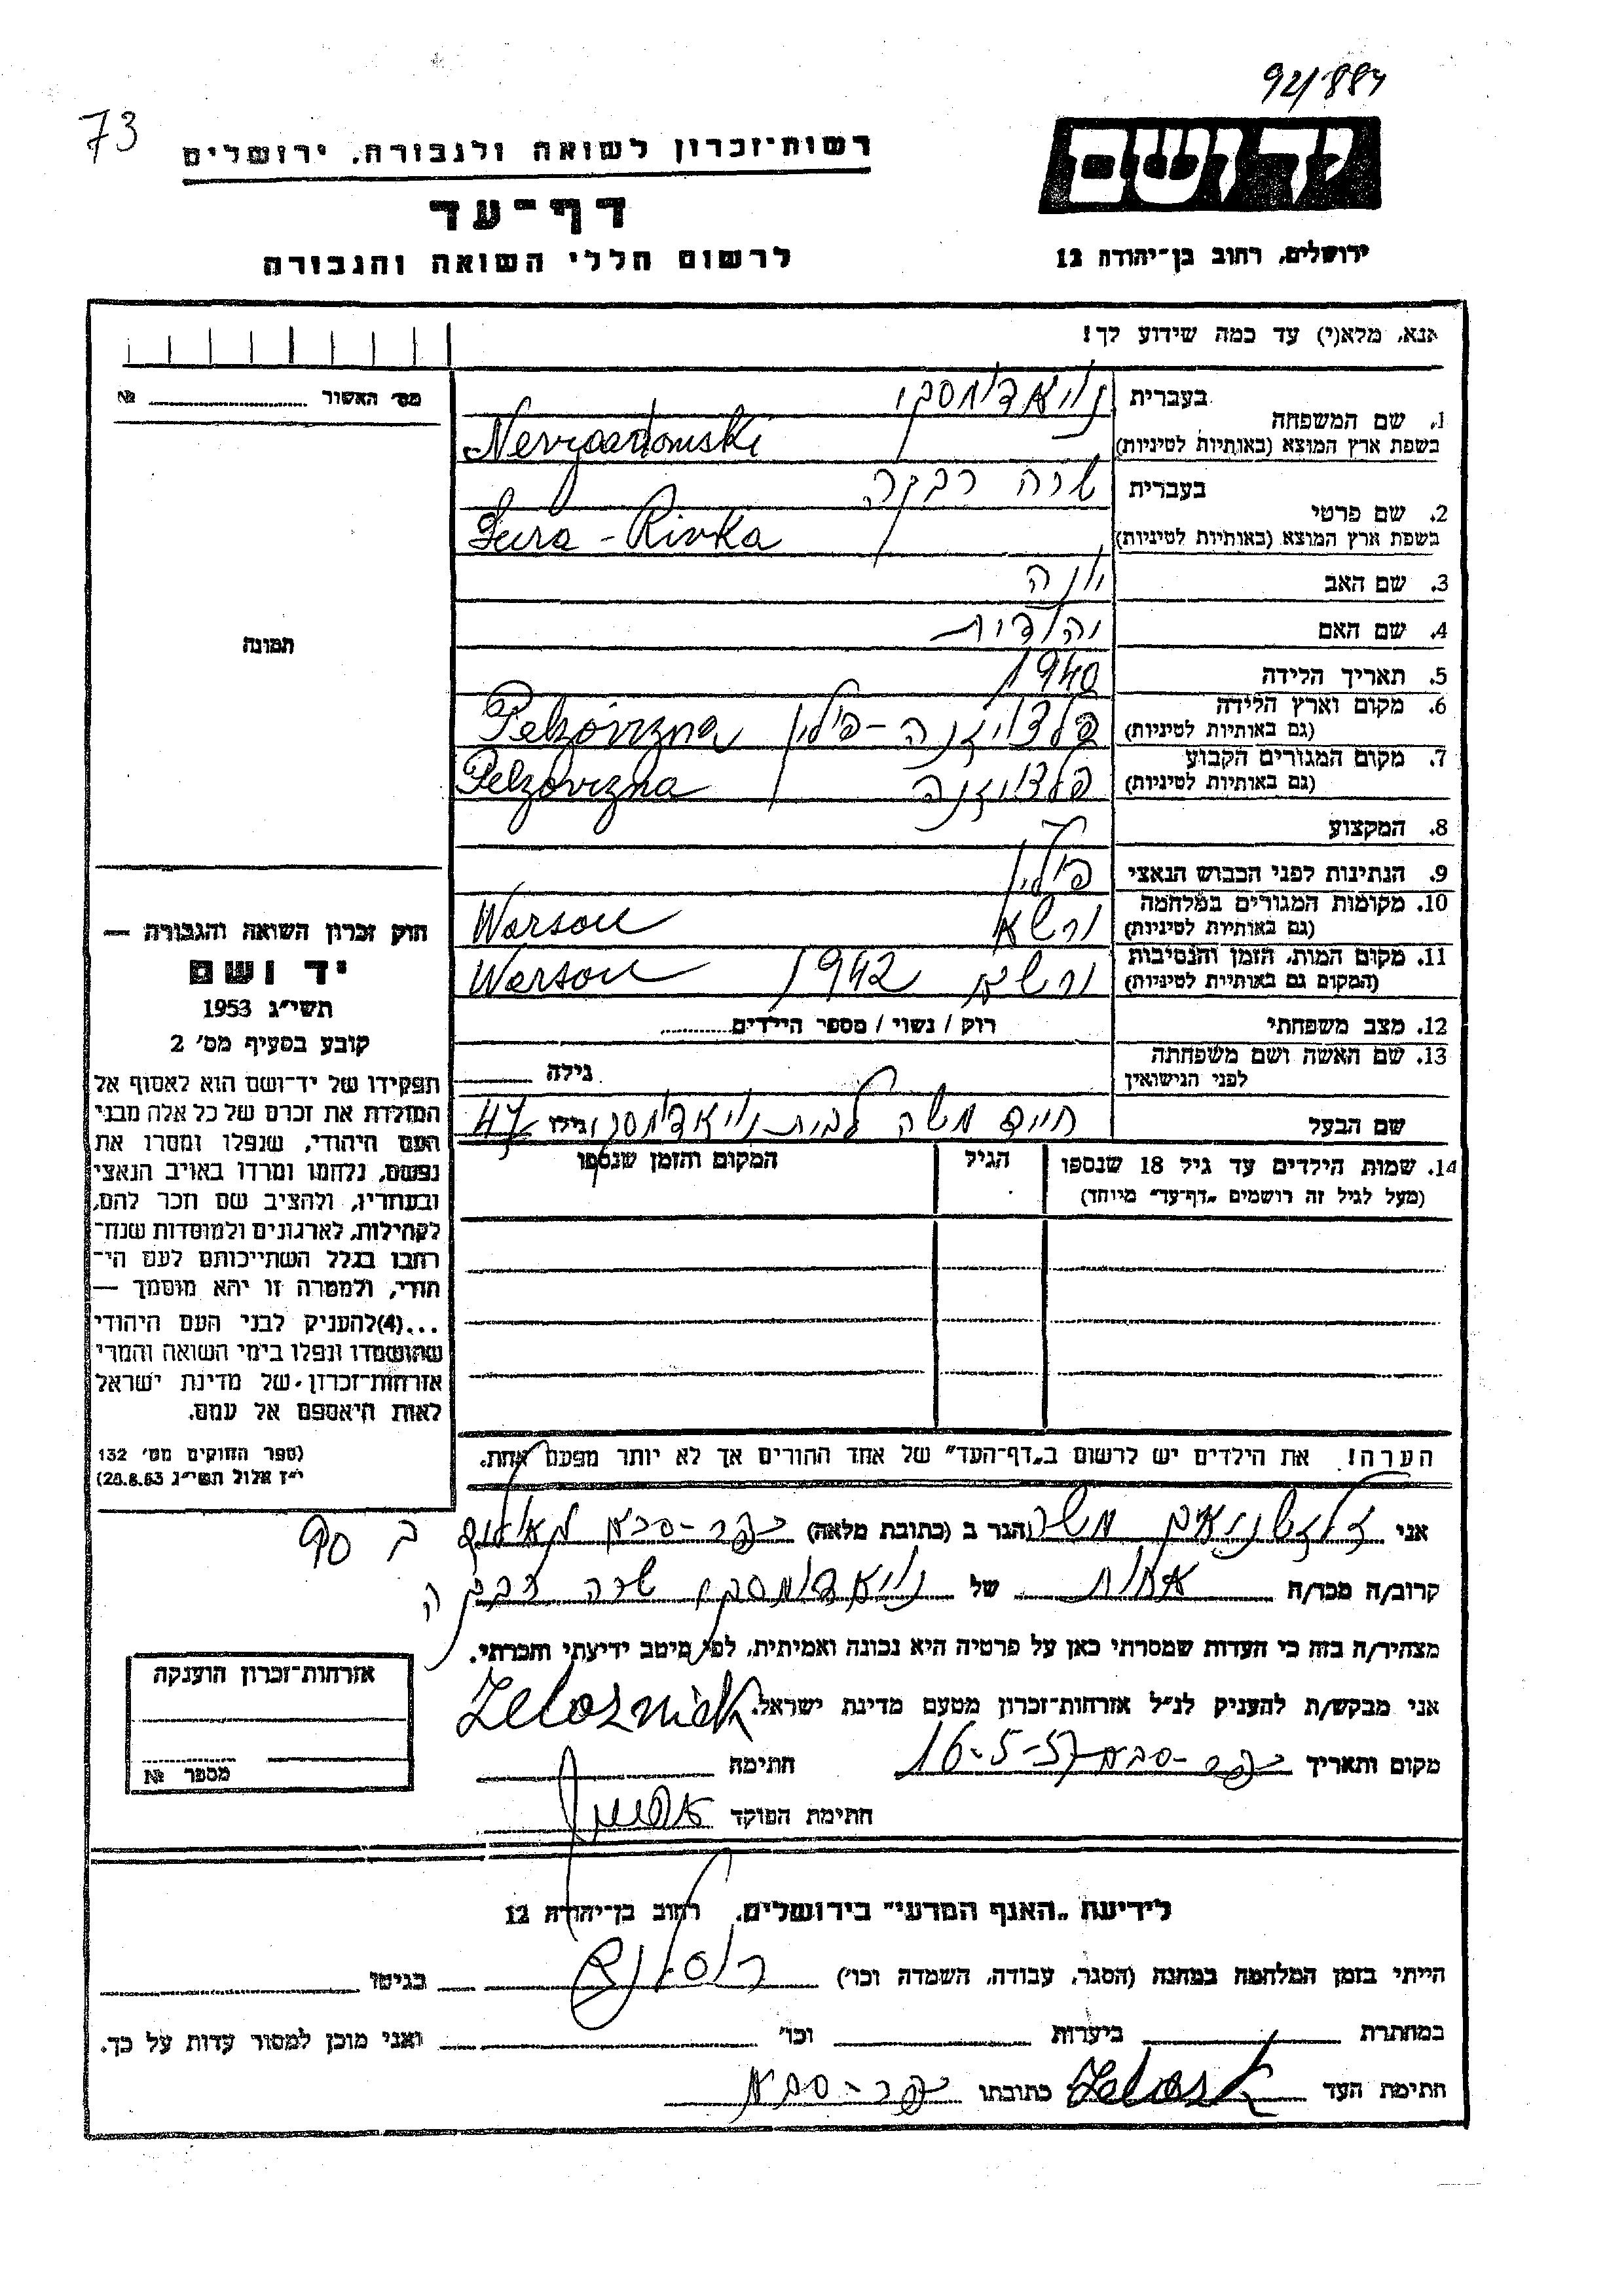 92/884
73
יד ושם
ירושלים, רחוב בן־יהודה 12
רשות־זכרון לשואה ולגבורה, ירושלים
דף־עד
לרשום חללי השואה והגבורה
אנא, מלא(י) עד כמה שידוע לך!
מס׳ האשור № 
1. שם המשפחה
בעברית
בשפת ארץ המוצא (באותיות לטיניות)
2. שם פרטי
בעברית שרה רבקה
בשפת ארץ המוצא (באותיות לטיניות) Sura - Rivka
3. שם האב יונה
4. שם האם יהודית
5. תאריך הלידה 1940
6. מקום וארץ הלידה פולין
(גם באותיות לטיניות) Pelzovizna
7. מקום המגורים הקבוע
(גם באותיות לטיניות) Pelzovizna
8. המקצוע
9. הנתינות לפני הכבוש הנאצי פולין
10. מקומות המגורים במלחמה ורשא
(גם באותיות לטיניות) Warsou
11. מקום המות, הזמן והנסיבות 1942
(המקום גם באותיית לטיניות) Warsou
12. מצב משפחתי רוק / נשוי / מספר הילדים
13. שם האשה ושם משפחתה
לפני הנישואין
גילה
שם הבעל חיים משה לבית גילו 47
14. שמות הילדים עד גיל 18 שנספו
(מעל לגיל זה רושמים „דף־עד״ מיוחד)
הגיל
המקום והזמן שנספו
הערה! את הילדים יש לרשום ב„דף־העד״ של אחד ההורים אך לא יותר מפעם אחת.
תמונה
חוק זכרון השואה והגבורה —
יד ושם
תשי״ג 1953
קובע בסעיף מס׳ 2
תפקידו של יד־ושם הוא לאסוף אל
המולדת את זכרם של כל אלה מבני
העם היהודי, שנפלו ומסרו את
נפשם, נלחמו ומרדו באויב הנאצי
ובעוזריו, ולהציב שם וזכר להם,
לקהילות, לארגונים ולמוסדות שנח־
רבו בגלל השתייכותם לעם הי־
הודי, ולמטרה זו יהא מוסמך —
...(4)להעניק לבני העם היהודי
שהושמדו ונפלו בימי השואה והמרי
אזרחות־זכרון של מדינת ישראל
לאות היאספם אל עמם.
(ספר החוקים מס׳ 132
י״ז אלול תשי״ג 28.8.53)
אני משה הגר ב (כתובת מלאה) כפר-סבא
קרוב/ה מכר/ה אחות של שרה רבקה
מצהיר/ה בזה כי העדות שמסרתי כאן על פרטיה היא נכונה ואמיתית, לפי מיטב ידיעתי והכרתי.
אני מבקש/ת להעניק לנ״ל אזרחות־זכרון מטעם מדינת ישראל.
מקום ותאריך כפר-סבא 16-5-57 חתימה
חתימת הפוקד
אזרחות־זכרון הוענקה
מספר №
לידיעת „האגף המדעי״ בירושלים, רחוב בן־יהודה 12
הייתי בזמן המלחמה במחנה (הסגר, עבודה, השמדה וכו׳) בגיטו
במחתרת ביערות וכו׳ ואני מוכן למסור עדות על כך.
חתימת העד כתובתו כפר-סבא